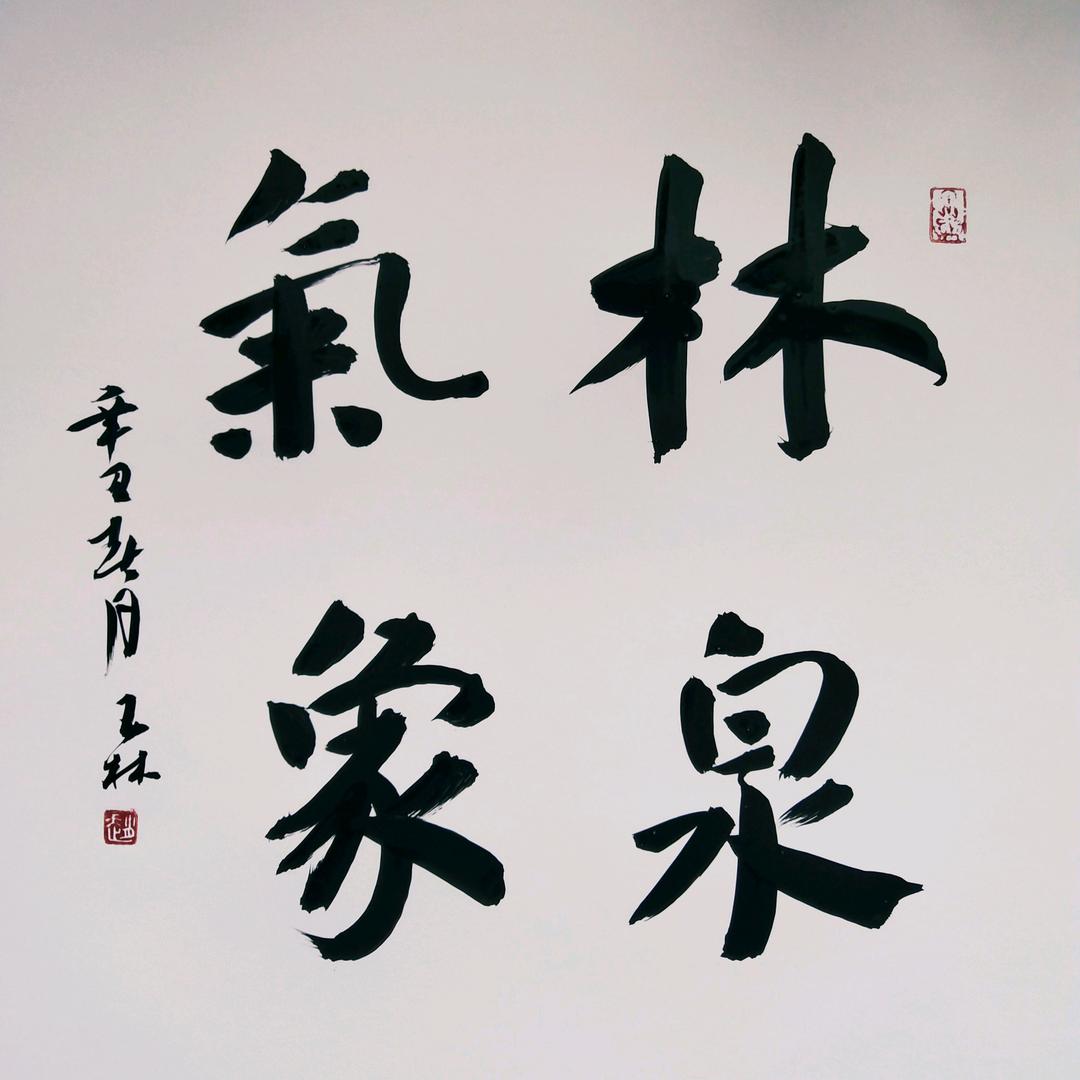 林泉
氣象
辛丑春月 玉林